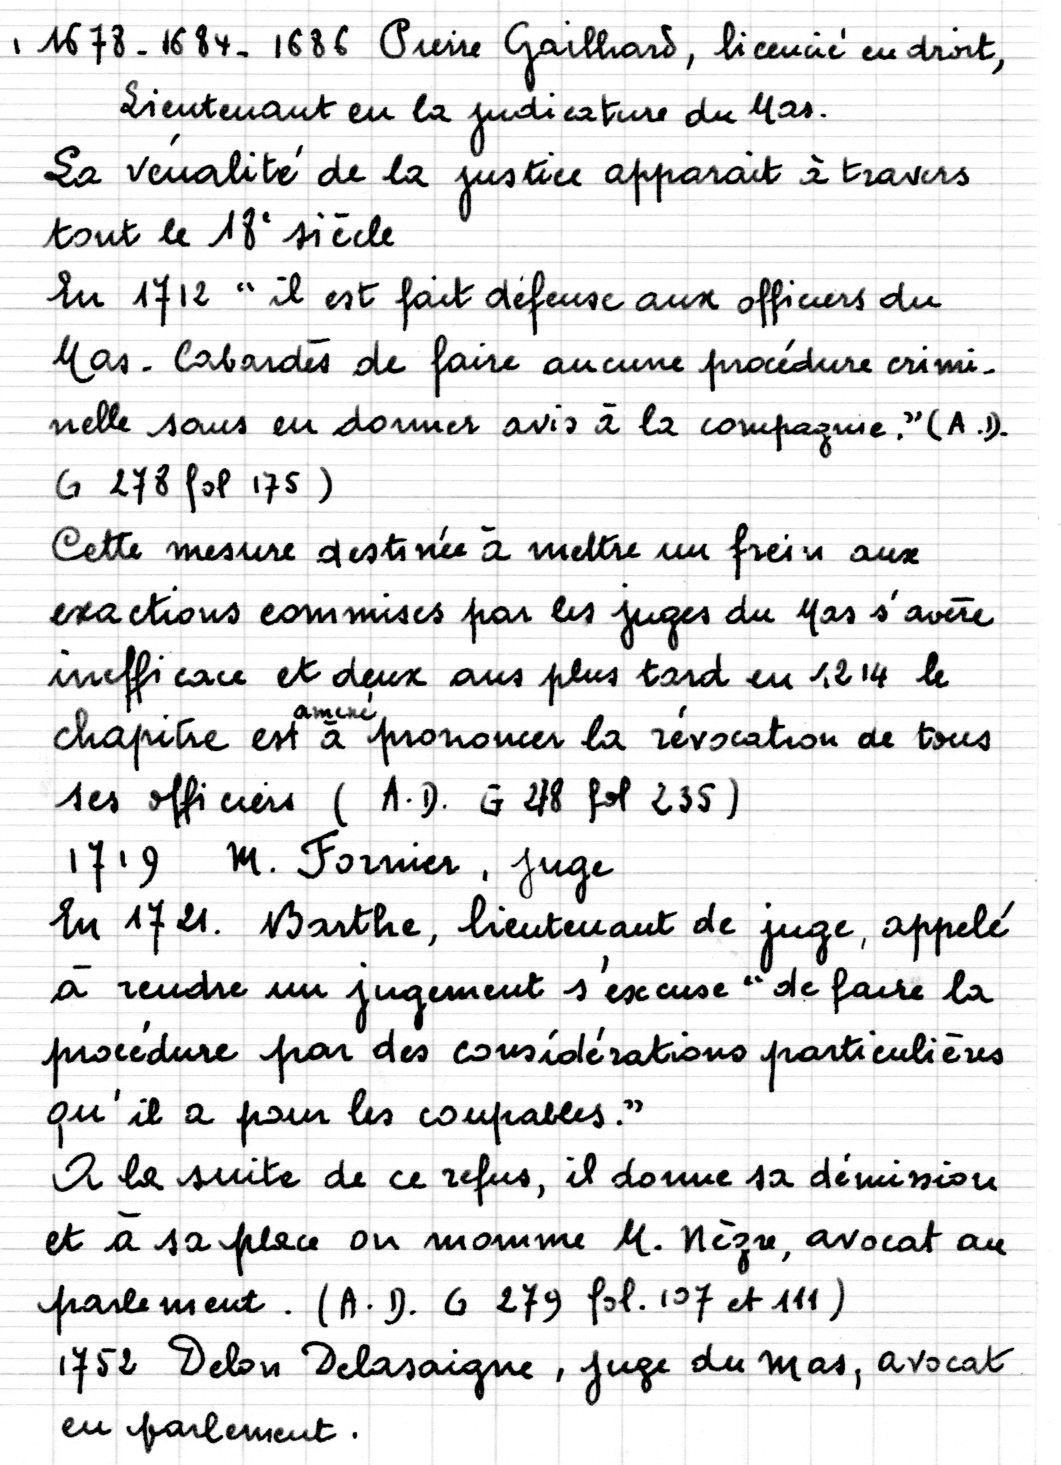 1678-1684-1686 Pierre Gailhard, licencié en droit,
Lieutenant en la judicature du Mas.
La vénalité de la justice apparait à travers
tout le 18e siècle
En 1712 "il est fait défense aux officiers du
Mas-Cabardès de faire aucune procédure crimi-
nelle sans en donner avis à la compagnie." (A.D.
G 278 fol 175)
Cette mesure destinée à mettre un frein aux
exactions commises par les juges du Mas s'avère
inefficace et deux ans plus tard en 1214 le
chapitre est amené à prononcer la révocation de tous
ses officiers (A.D. G 278 fol 235)
1719 M. Fornier, juge
En 1721. Barthe, lieutenant de juge, appelé
à rendre un jugement s'excuse "de faire la
procédure par des considérations particulières
qu'il a pour les coupables."
A la suite de ce refus, il donne sa démission
et à sa place on nomme M. Nègre, avocat au
parlement. (A.D. G 279 fol. 107 et 111)
1752 Delon Delasaigne, juge du Mas, avocat
en parlement.